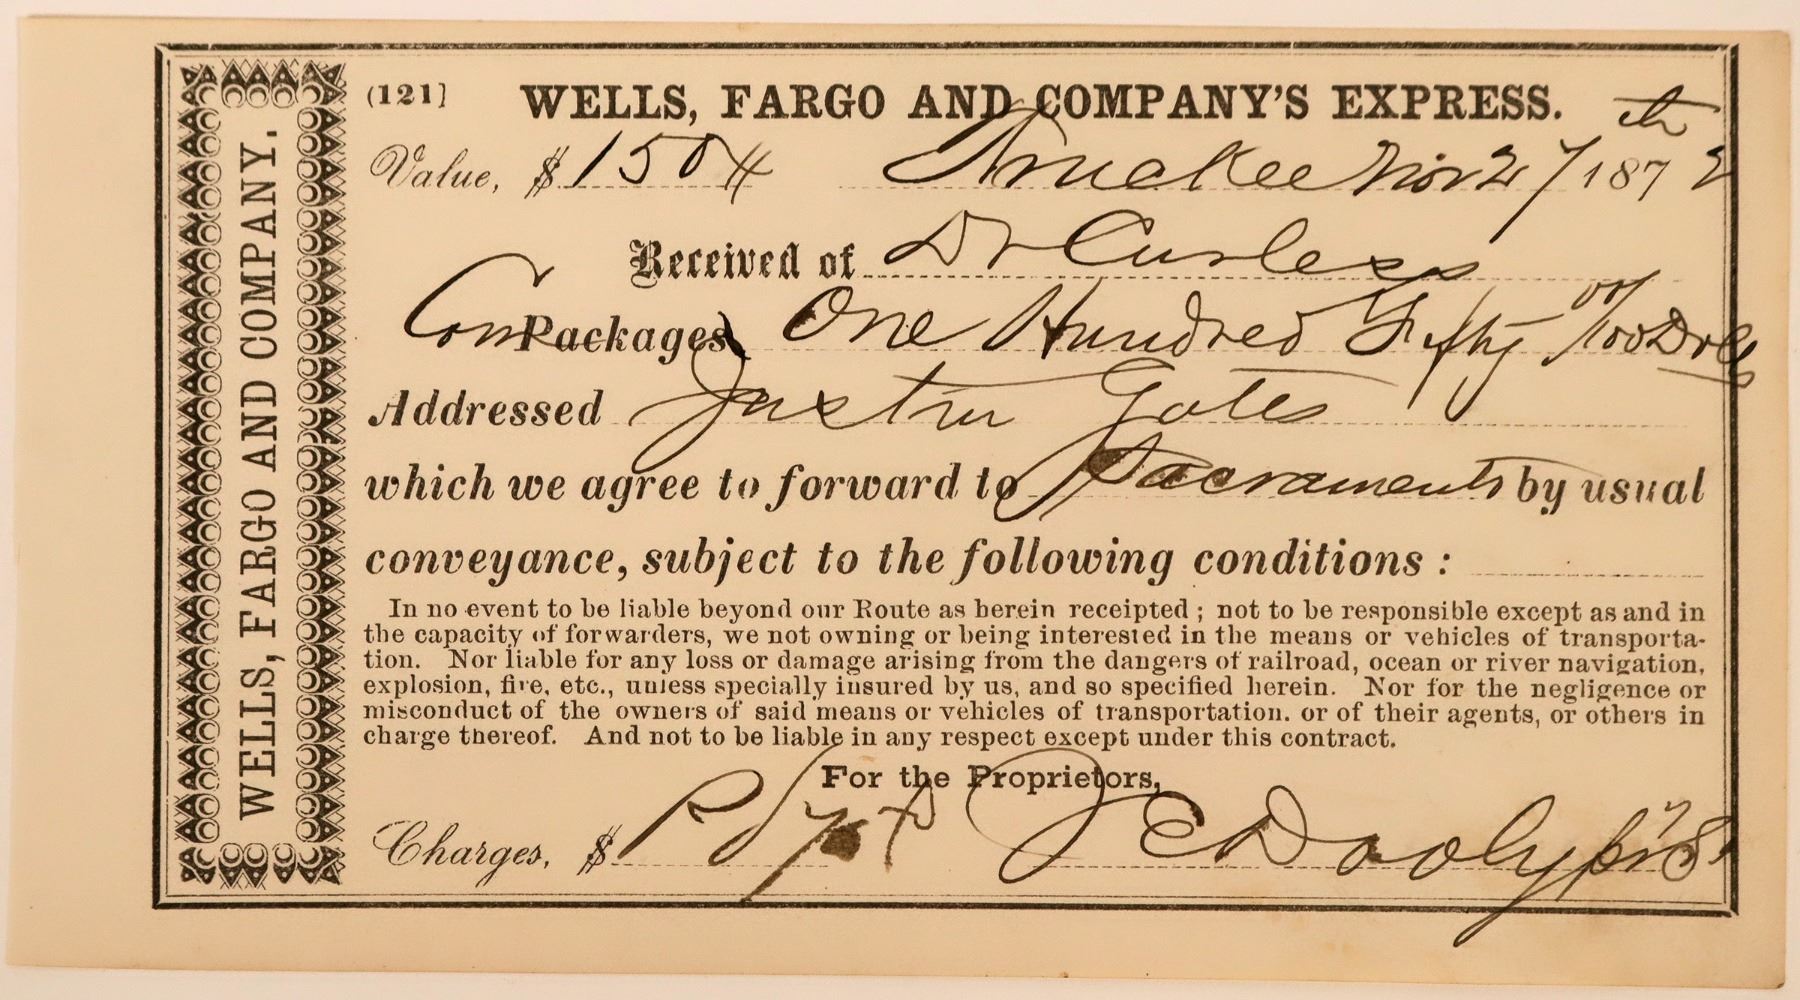 WELLS, FARGO AND COMPANY.
(121] WELLS, FARGO AND COMPANY'S EXPRESS.
Value, $150 Truckee Nov 27th 1872
Received of Dr Curless
Com Packages One Hundred Fifty 00/100 Dolls
Addressed Justin Gates
which we agree to forward to Sacramento by usual
conveyance, subject to the following conditions :
In no event to be liable beyond our Route as herein receipted ; not to be responsible except as and in
the capacity of forwarders, we not owning or being interested in the means or vehicles of transporta-
tion. Nor liable for any loss or damage arising from the dangers of railroad, ocean or river navigation,
explosion, fire, etc., unless specially insured by us, and so specified herein. Nor for the negligence or
misconduct of the owners of said means or vehicles of transportation. or of their agents, or others in
charge thereof. And not to be liable in any respect except under this contract.
For the Proprietors,
Charges, $ J E Dooly